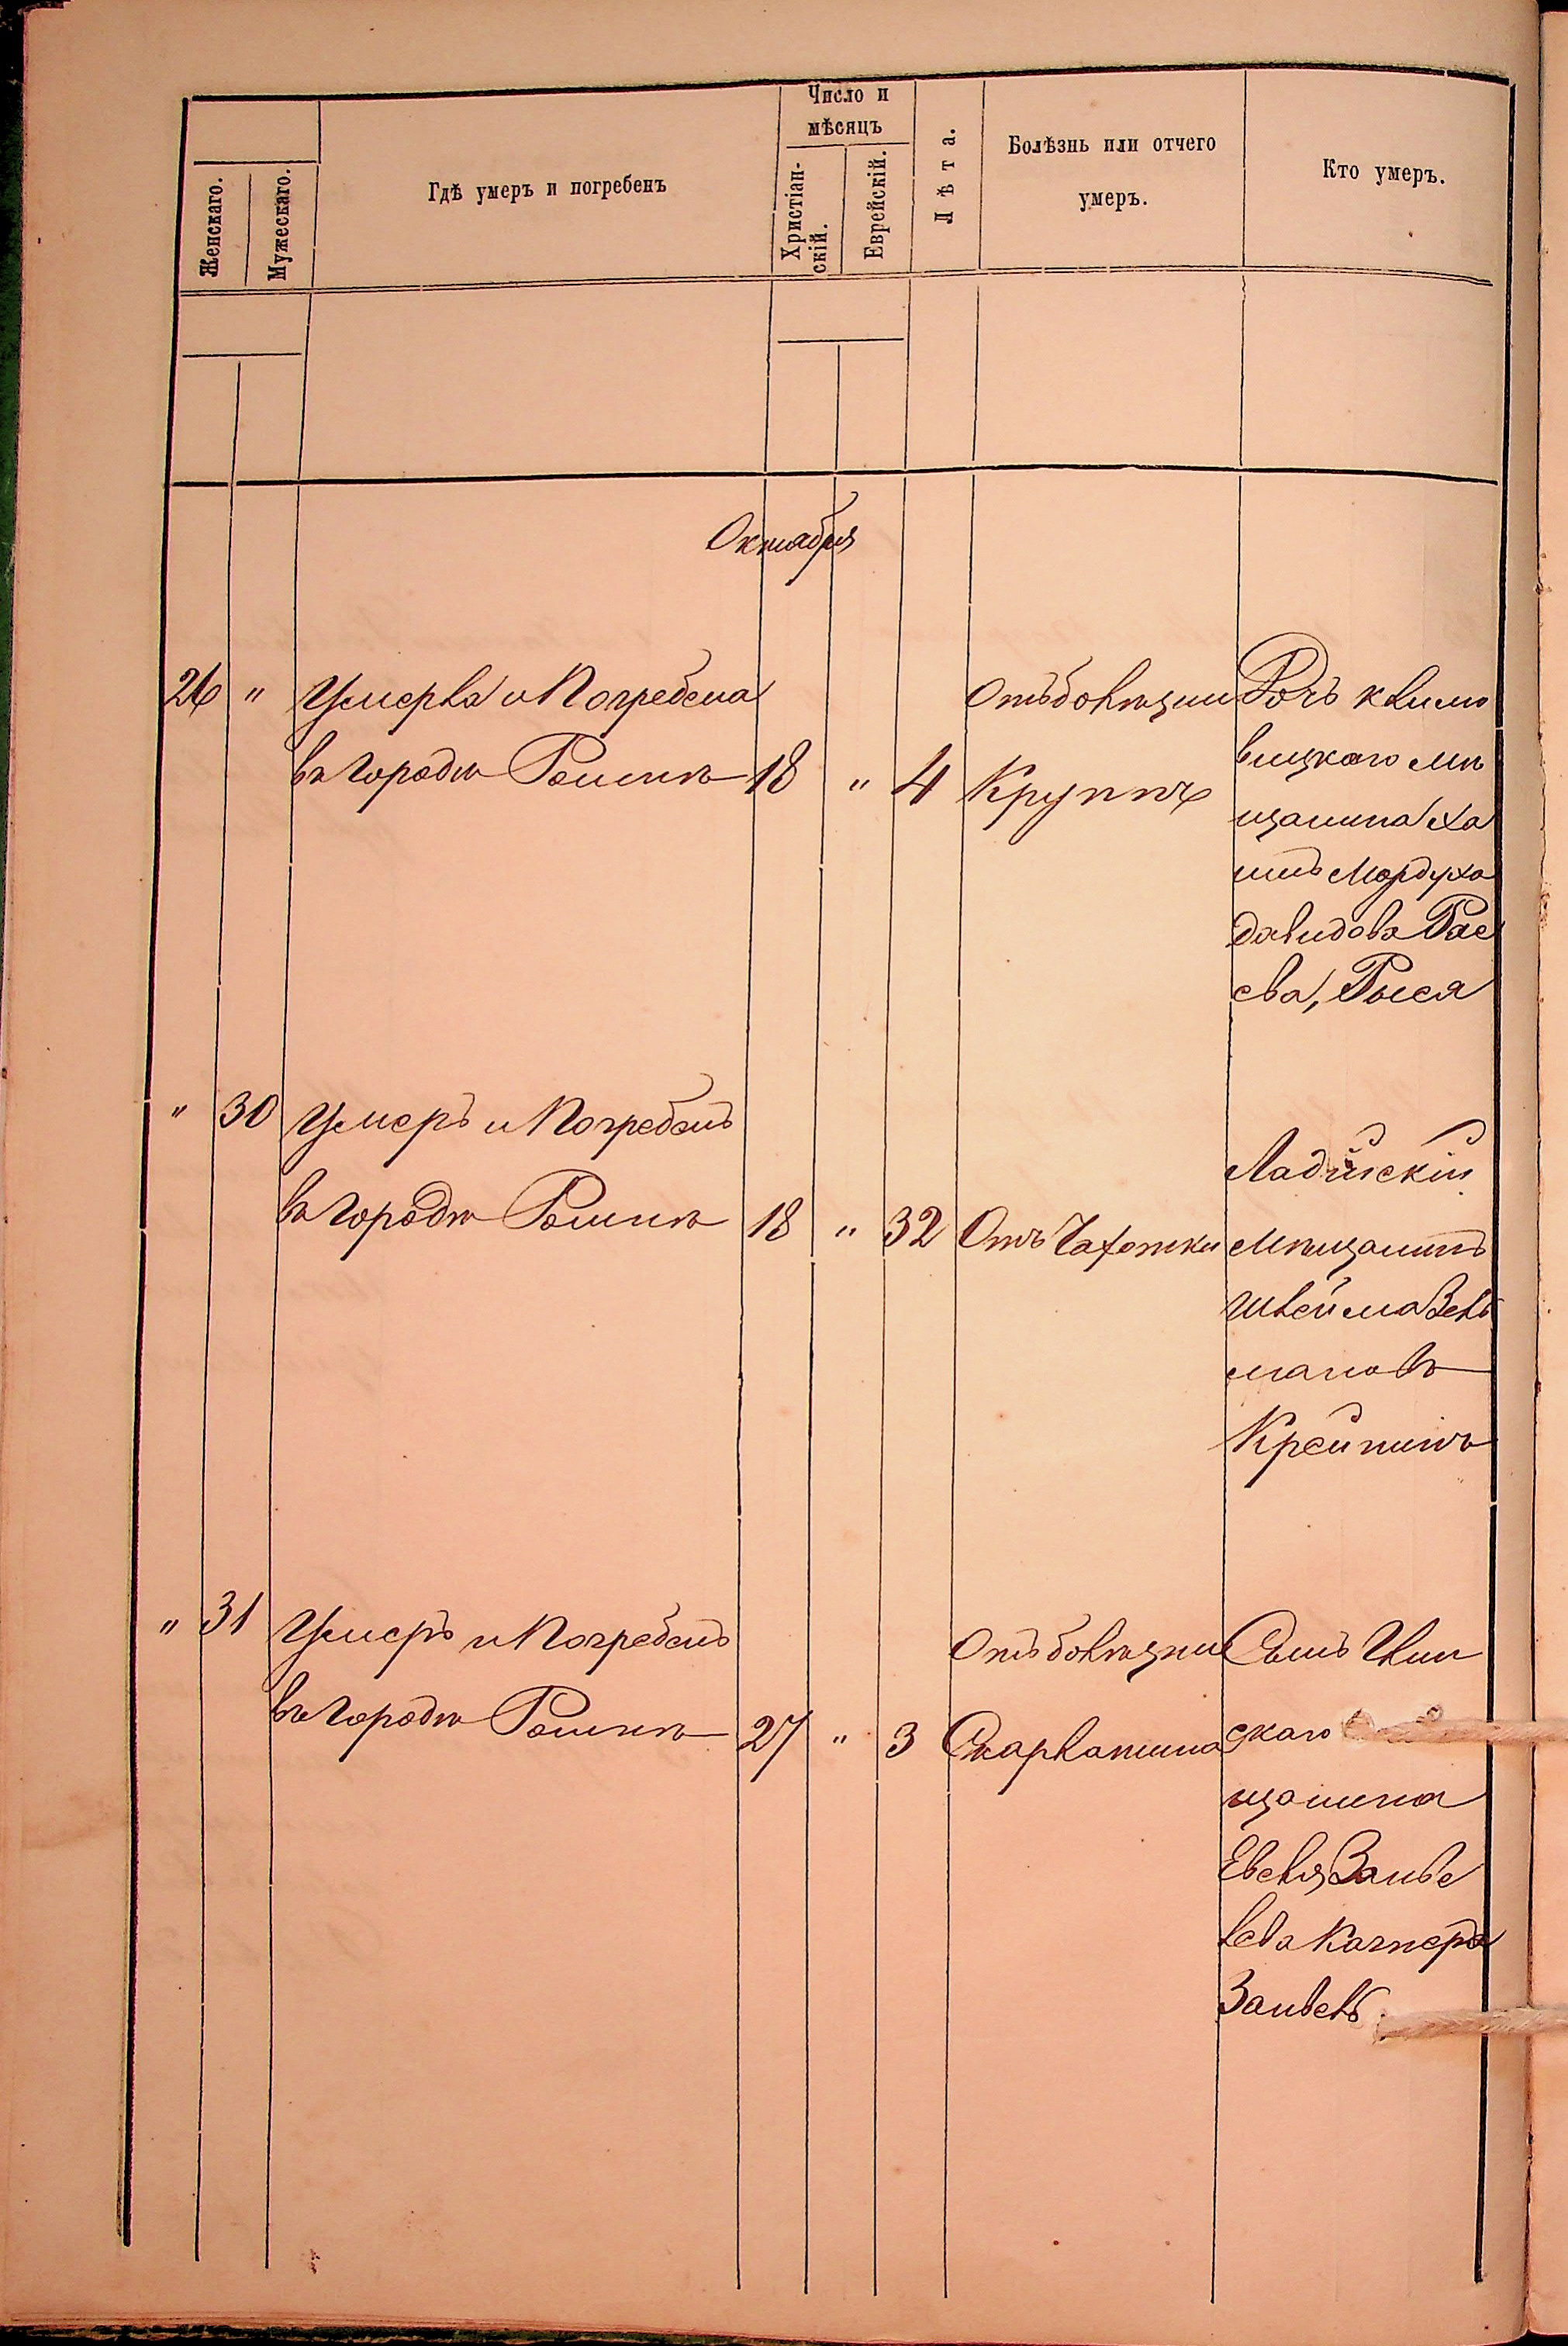 Женскаго.
Мужескаго.
Гдѣ умеръ и погребенъ
Число и
мѣсяцъ
Христіан-
скій.
Еврейскій.
Лѣта.
Болѣзнь или отчего
умеръ.
Кто умеръ.
Октября
26 " Умерла и Погребена
въ городѣ Ромнѣ 18 " 4
Отъ болѣзни
Крупъ
Дочь Климо
вицкаго мѣ
щанина Ха
имъ Мордуха
Давидова Рае
ева, Рыся
" 30 Умеръ и Погребенъ
въ городѣ Ромнѣ 18 " 32 Отъ Чахотки
Лядискій
мѣщанинъ
Шлейма Зель
мановъ
Крейнинъ
" 31 Умеръ и Погребенъ
въ городѣ Ромнѣ 27 " 3
Отъ болѣзни
Скарлатина
Сынъ
скаго
щанина
Евеля
лева